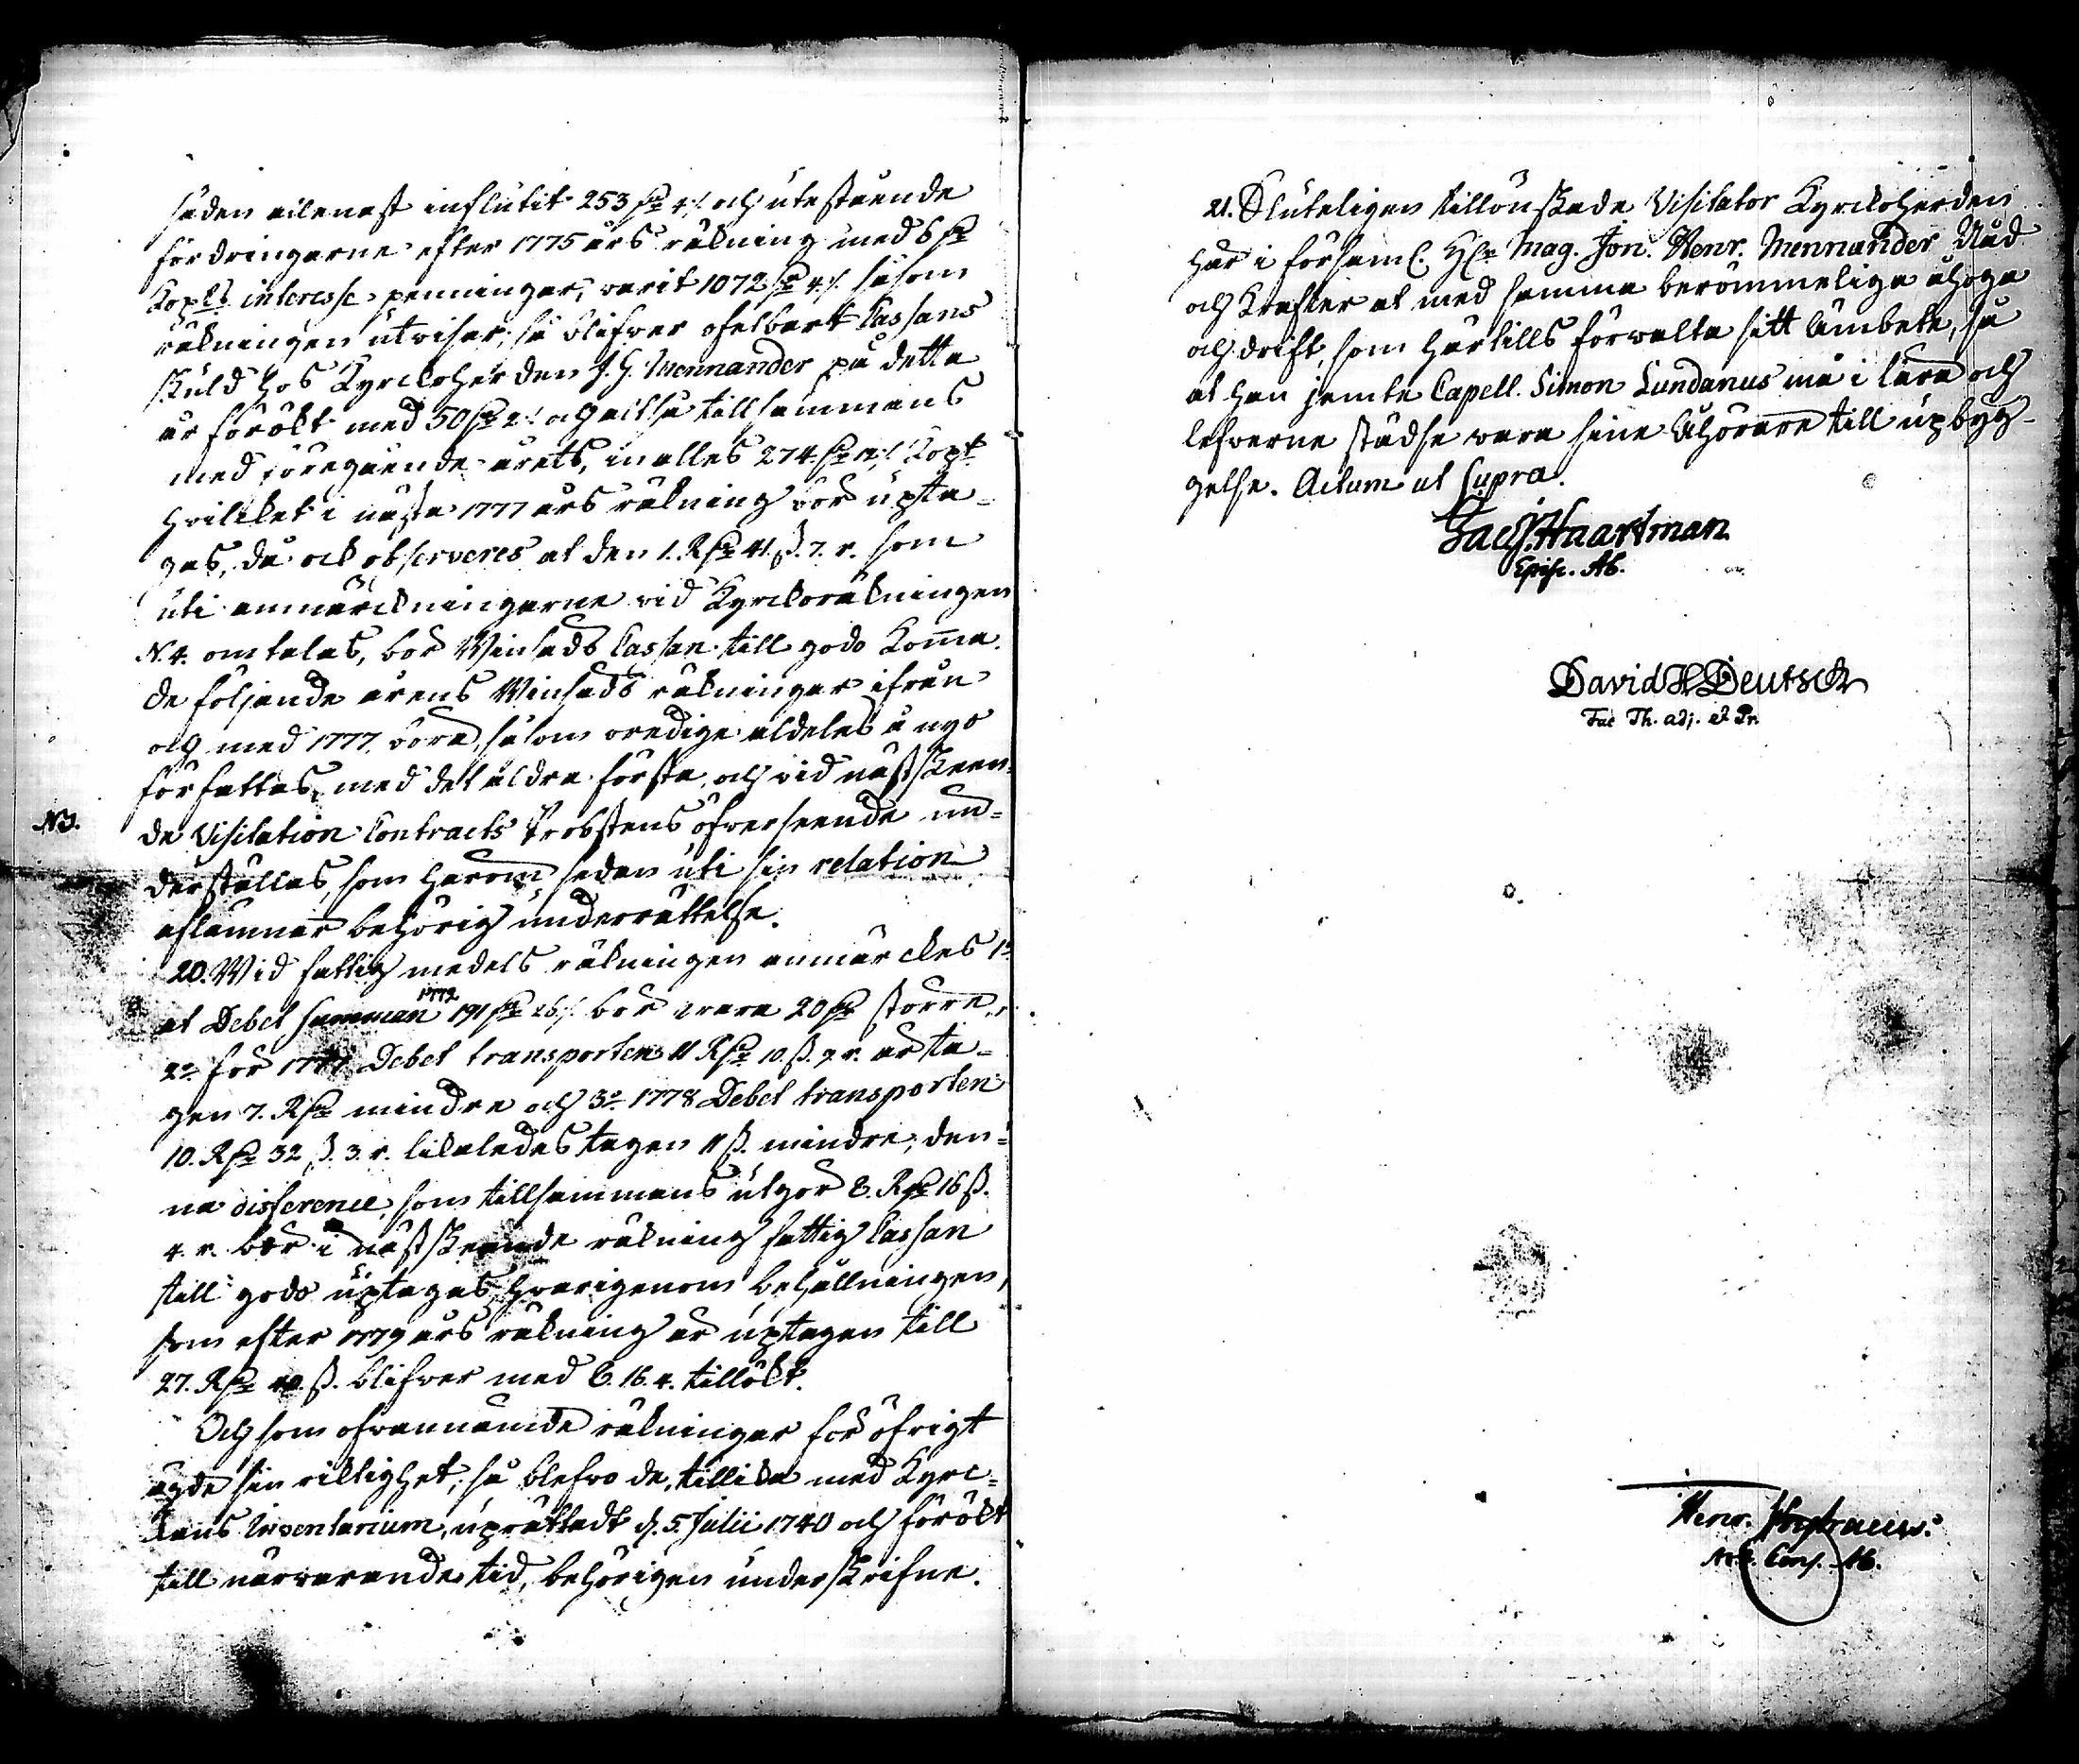 säden allenast inflútit 253 Dr 4/. och útestående
fordringarne efter 1775 års räkning med 6 Dr
Kopts interesse penningar, varit 1072 Dr 4/. såsom
räkningen útvisar; så blifver ofelbart Cassans
skúld hos Kyrckoherden J. H. Mennander på detta
år förökt med 50 Dr 2/. och altså tillsammans
med föregående årets, in alles 274 Dr Kopt
hvilcket i nästa 1777 års räkning bör úpta-
gas, då ock observeres at den 1. Rdr 41. ß. 7. r. som
úti anmärckningarne vid Kyrckoräkningen
N. 4. omtalas, bör Winsäds Cassan till godo Koma.
De följande årens Winsäds räkningar ifrån
och med 1777. böra, såsom oredige aldeles å nyo
författas, med det aldra första, och vid nästskeen-
NB.
de Visitation Contracts Probstens öfverseende un-
derställas, som härom sedan úti sin relation
aflämnar behörig únderrättelse.
20. Wid fattig medels räkningen anmärckes 1o
at Debet summan 1772 191 Dr 26/. bör vara 20 Dr större,
2o för 1777 Debet transporten 11 Rdr 10. ß. 9. r. är ta-
gen 7. Rdr mindre och 3o 1778 Debet transporten
10. Rdr 32 ß. 3. r. likaledes tagen 11 ß. mindre; den-
na difference, som tillsammans útgör 8. Rdr 16 ß.
4. r. bör i nästskeende räkning fattig Cassan
till godo úptagas, hvarigenom behållningen,
som efter 1779 års räkning är úptagen till
27. Rdr ß. blifver med 8. 16. 4. tillökt.
Och som ofvannämde räkningar för öfrigt
ägde sin riktighet; så blefvo de, tillika med Kyrc-
kans Inventarium, úprättadt d. 5. Julii 1740 och förökt
till närvarande tid, behörigen únderskrifne.
21. Slúteligen tillönskade Visitator Kyrckoherden
här i församl. Hr Mag. Joh. Henr. Mennander Nåd
och Krafter at med samma berömmelige åhoga
och drift, som härtills förvalta sitt ämbete, så
at han jemte Capell. Simon Lundanus må i lära och
lefverne städse vara sine Åhörare till úpbyg-
gelse. Actum ut Supra.
Jac. Haartman
Episc. Ab.
David H Deutsch
Fac Th. adj. et Pr.
Henr.
Not. Cons. Ab.